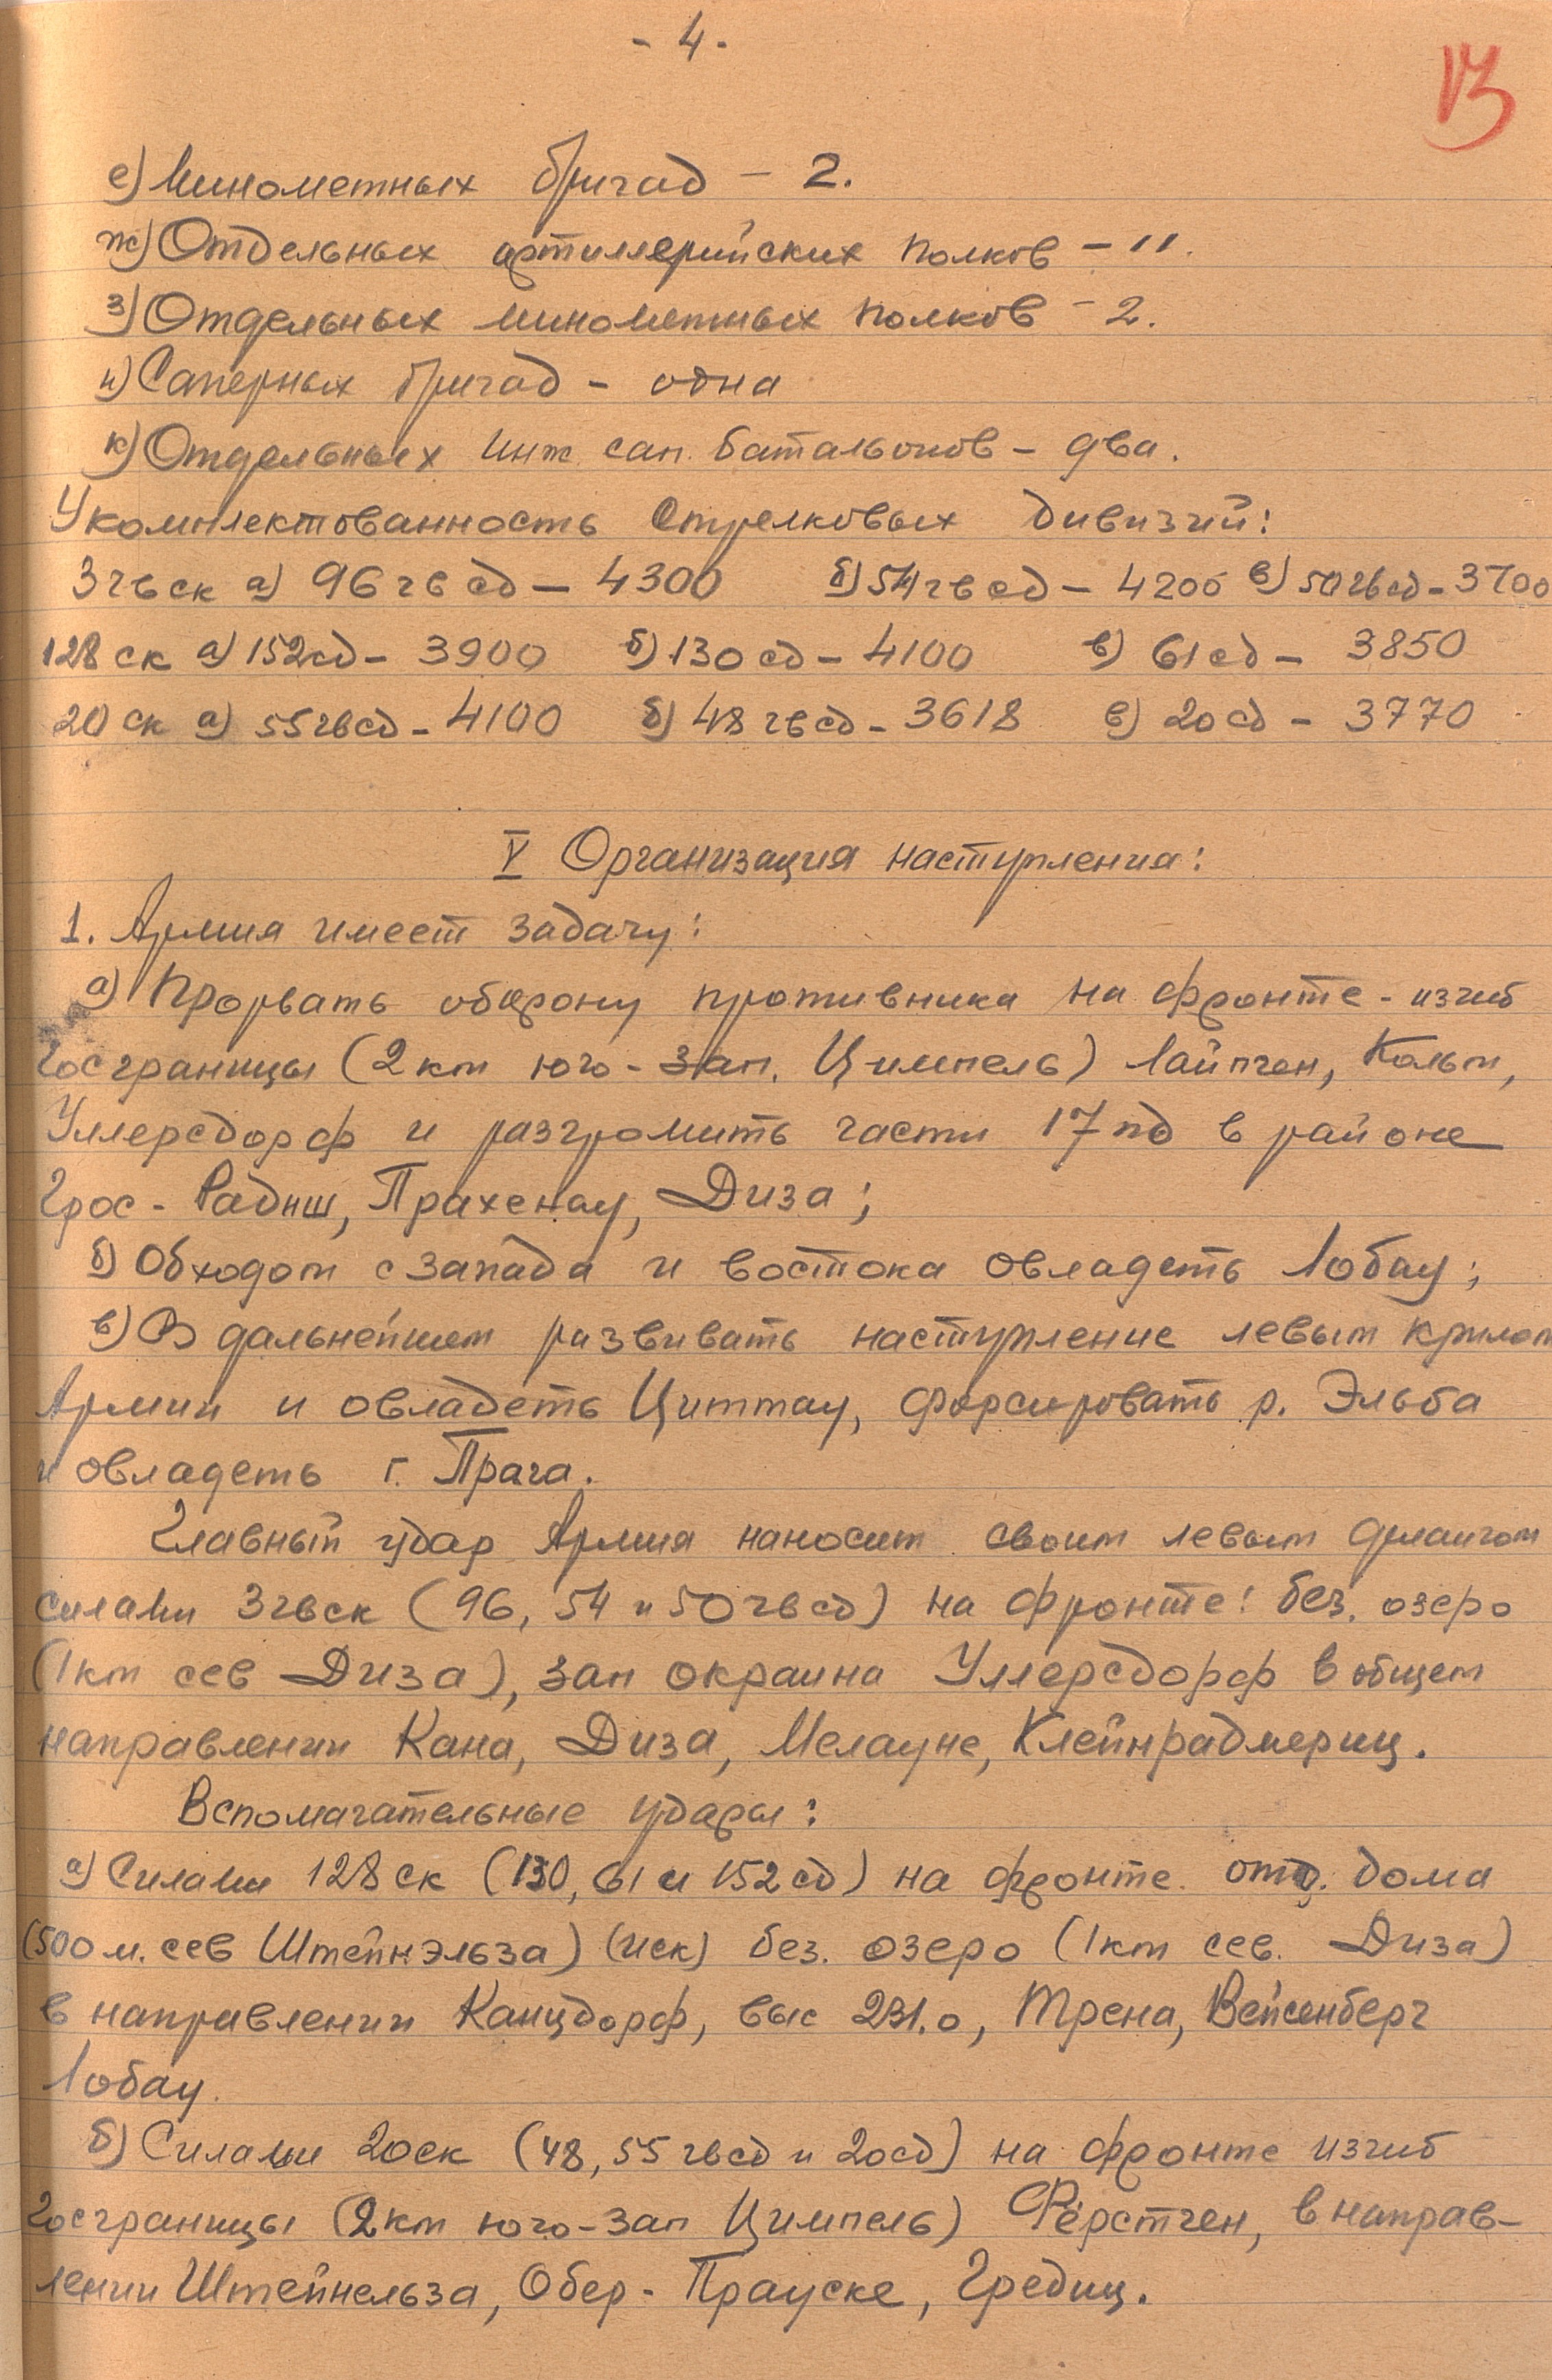 - 4 -
13
е) Минометных бригад – 2.
ж) Отдельных артиллерийских полков – 11.
з) Отдельных минометных полков – 2.
и) Саперных бригад – одна
к) Отдельных инж. сап. батальонов – два.
Укомплектованность стрелковых дивизий:
3 гв ск а) 96 гв сд – 4300 б) 54 гв сд – 4200 в) 50 гв сд – 3700
128 ск а) 152 сд – 3900 б) 130 сд – 4100 в) 61 сд – 3850
20 ск а) 55 гв сд – 4100 б) 48 гв сд – 3618 в) 20 сд – 3770
V Организация наступления:
1. Армия имеет задачу:
а) Прорвать оборону противника на фронте - изгиб
госграницы (2 км юго-зап. Цимпель) Лайпген, Кольм,
Уллерсдорф и разгромить части 17 пд в районе
Грос-Радиш, Прахенау, Диза;
б) Обходом с запада и востока овладеть Лобау;
в) В дальнейшем развивать наступление левым крылом
Армии и овладеть Циттау, форсировать р. Эльба
и овладеть г. Прага.
Главный удар Армия наносит своим левым флангом
силами 3 гв ск (96, 54 и 50 гв сд) на фронте: без. озеро
(1 км сев Диза), зап окраина Уллерсдорф в общем
направлении Кана, Диза, Мелауне, Клейнрадмериц.
Вспомагательные удары:
а) Силами 128 ск (130, 61 и 152 сд) на фронте. отд. дома
(500 м. сев Штейнэльза) (иск) без. озеро (1 км сев. Диза)
в направлении Канцдорф, выс 231.0, Трена, Вейсенберг
Лобау.
б) Силами 20 ск (48, 55 гв сд и 20 сд) на фронте изгиб
Госграницы (2 км юго-зап Цимпель) Фёрстген, в направ-
лении Штейнельза, Обер-Прауске, Гредиц.